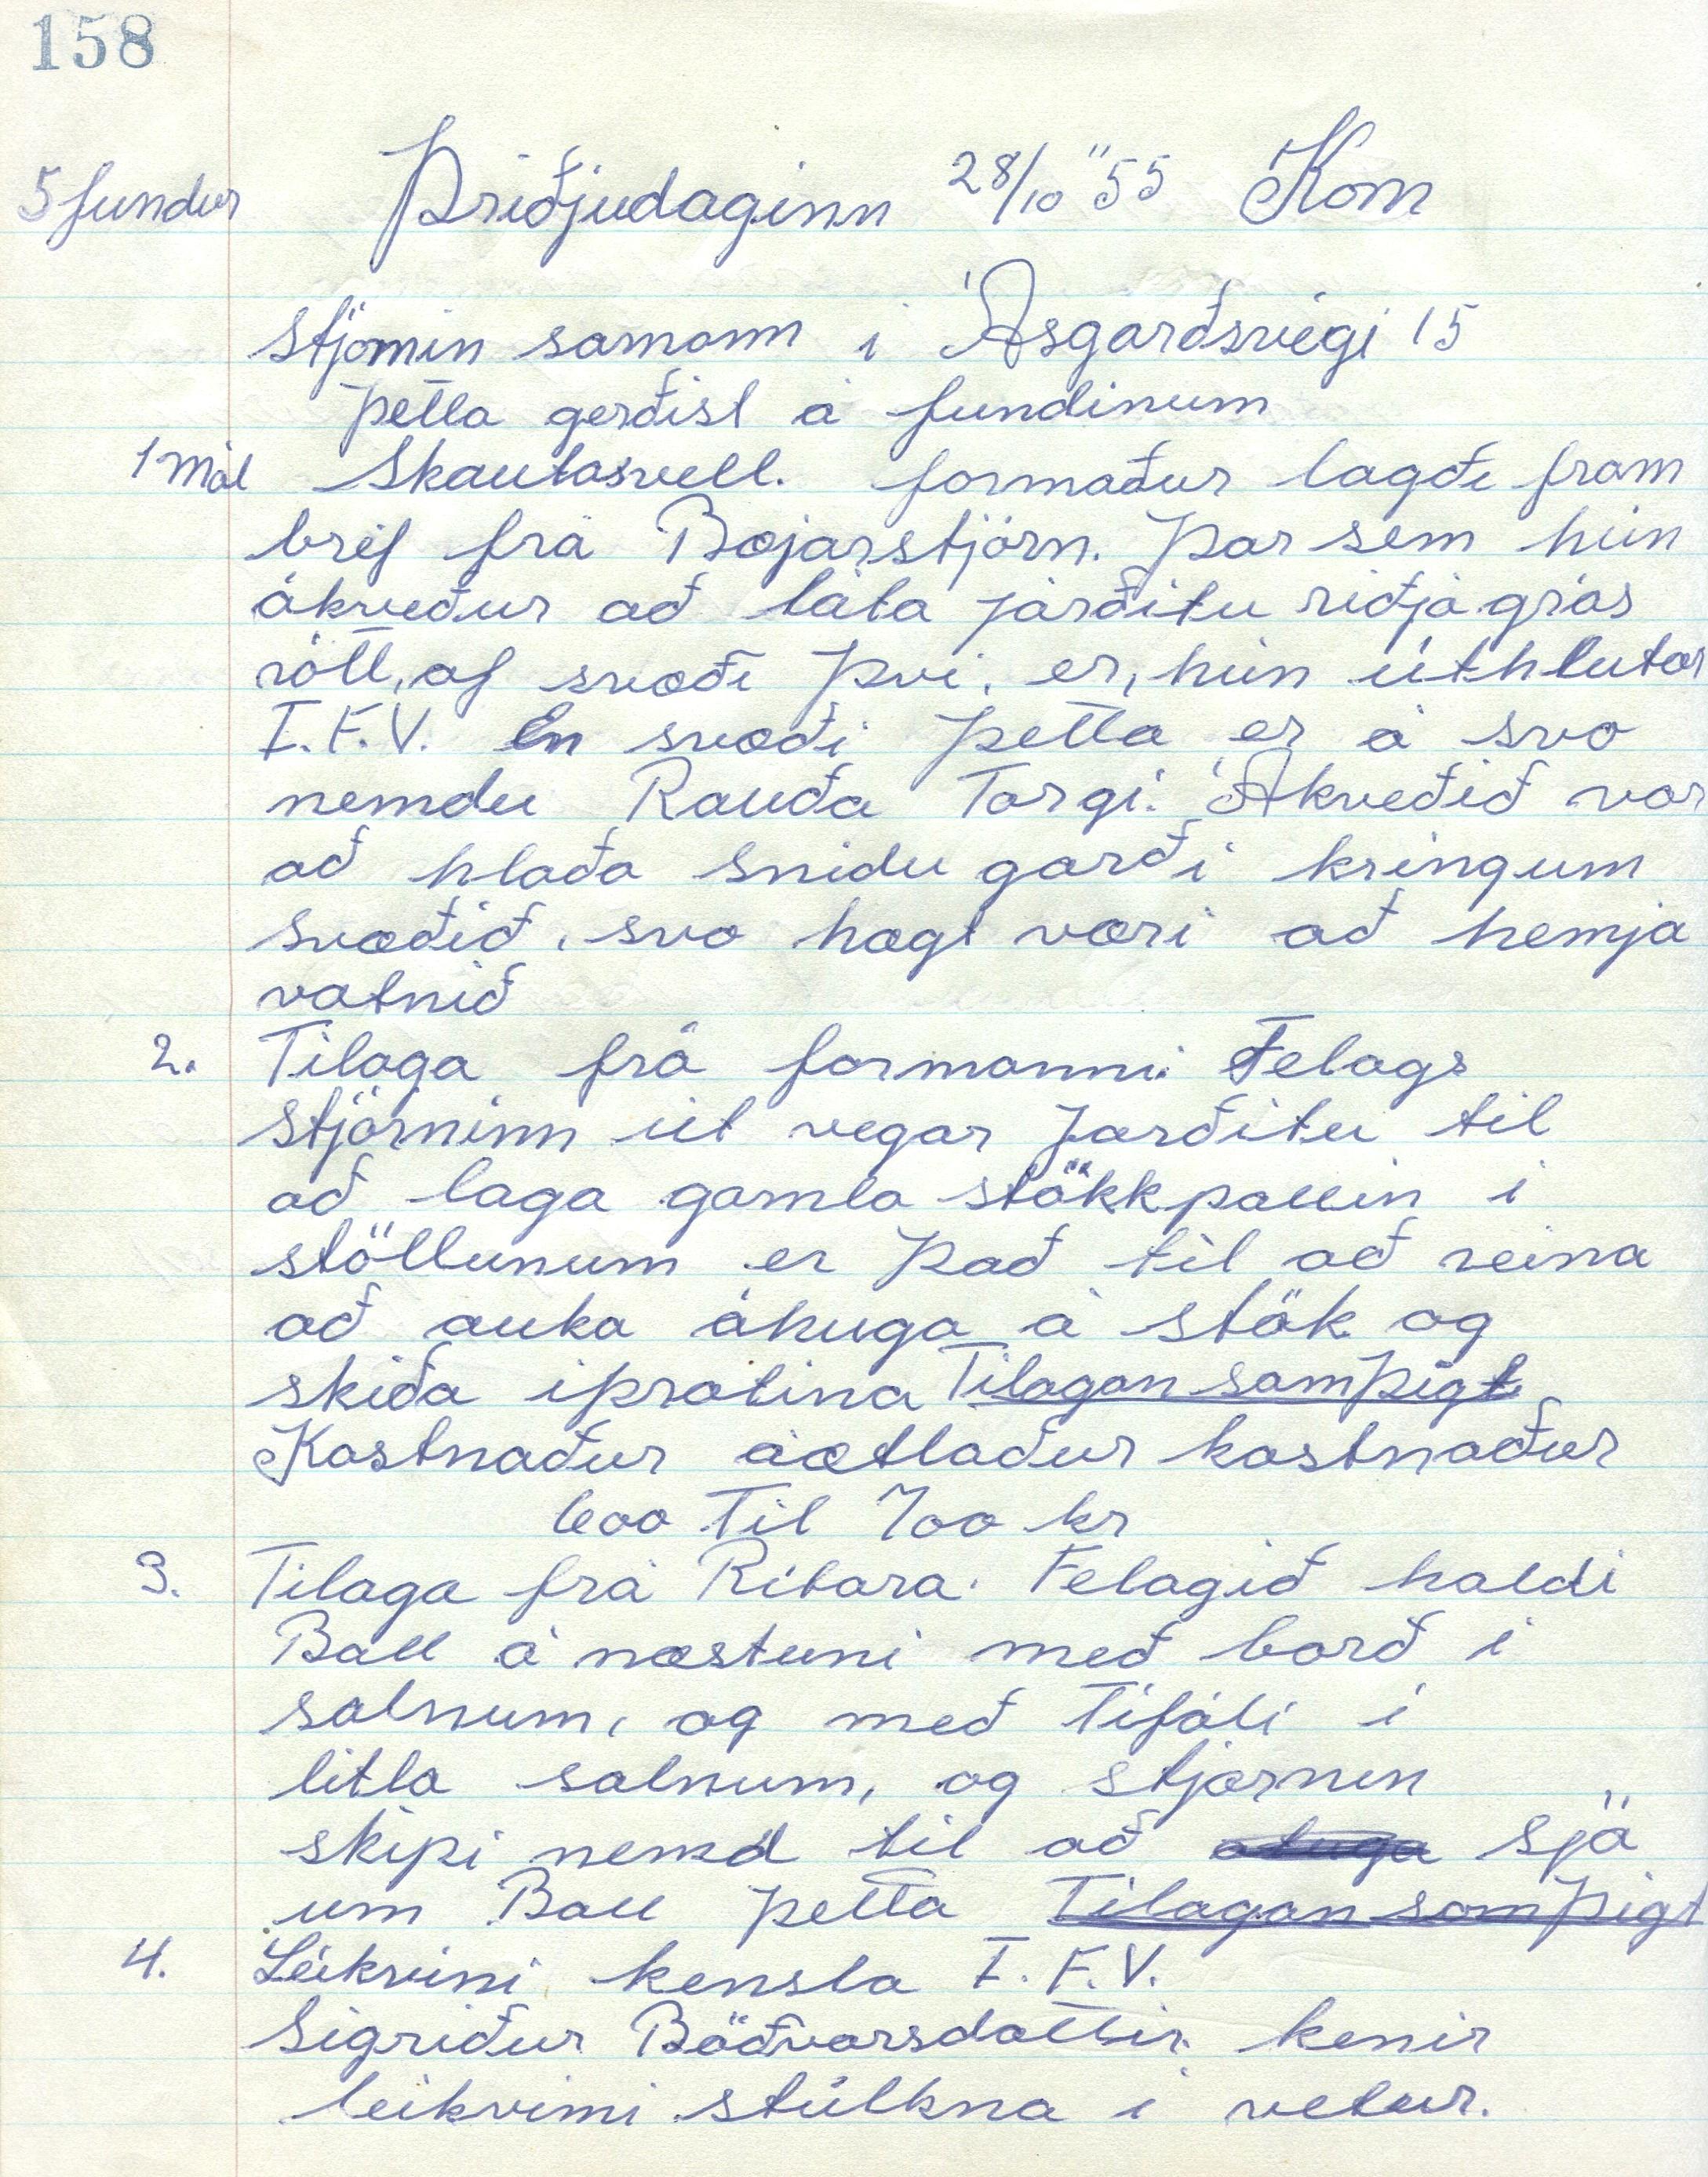 158
5 fundur Þriðjudaginn 28/10 "55 Kom
stjórnin saman i Ásgarðsveigi 15
Þetta gerðist á fundinum
1 Mál Skautasvell. formaður lagðe fram
bréf frá Bæjarstjórn. Þar sem hún
ákveður að láta jarðítu riðja grás
róll, af svæðe Því, er, hún úthlutar
I.F.V. En svæði Þetta er á svo
nemdu Rauða Torgi. Ákveðið var
að hlaða snidu garði kringum
svæðið, svo hægt væri að hemja
vatnið
2. Tilaga frá formanni Felags
stjórninn út vegar Jarðítu til
að laga gamla stökkpallin i
stöllunum er Það til að reina
að auka áhuga á stök og
skiða iþrotina Tilagan samÞigt
Kostnaður áætlaður kostnaður
600 Til 700 kr
3. Tilaga frá Ritara. Felagið haldi
Ball á næstuni með borð i
salnum, og með Tifáli i
litla salnum, og stjornin
skipi nemd til að sjá
um Ball Þetta Tilagan samÞigt
4. Leikvimi kensla I.F.V.
Sigriður Böðvarsdottir kenir
leikvimi stúlkna i vetur.